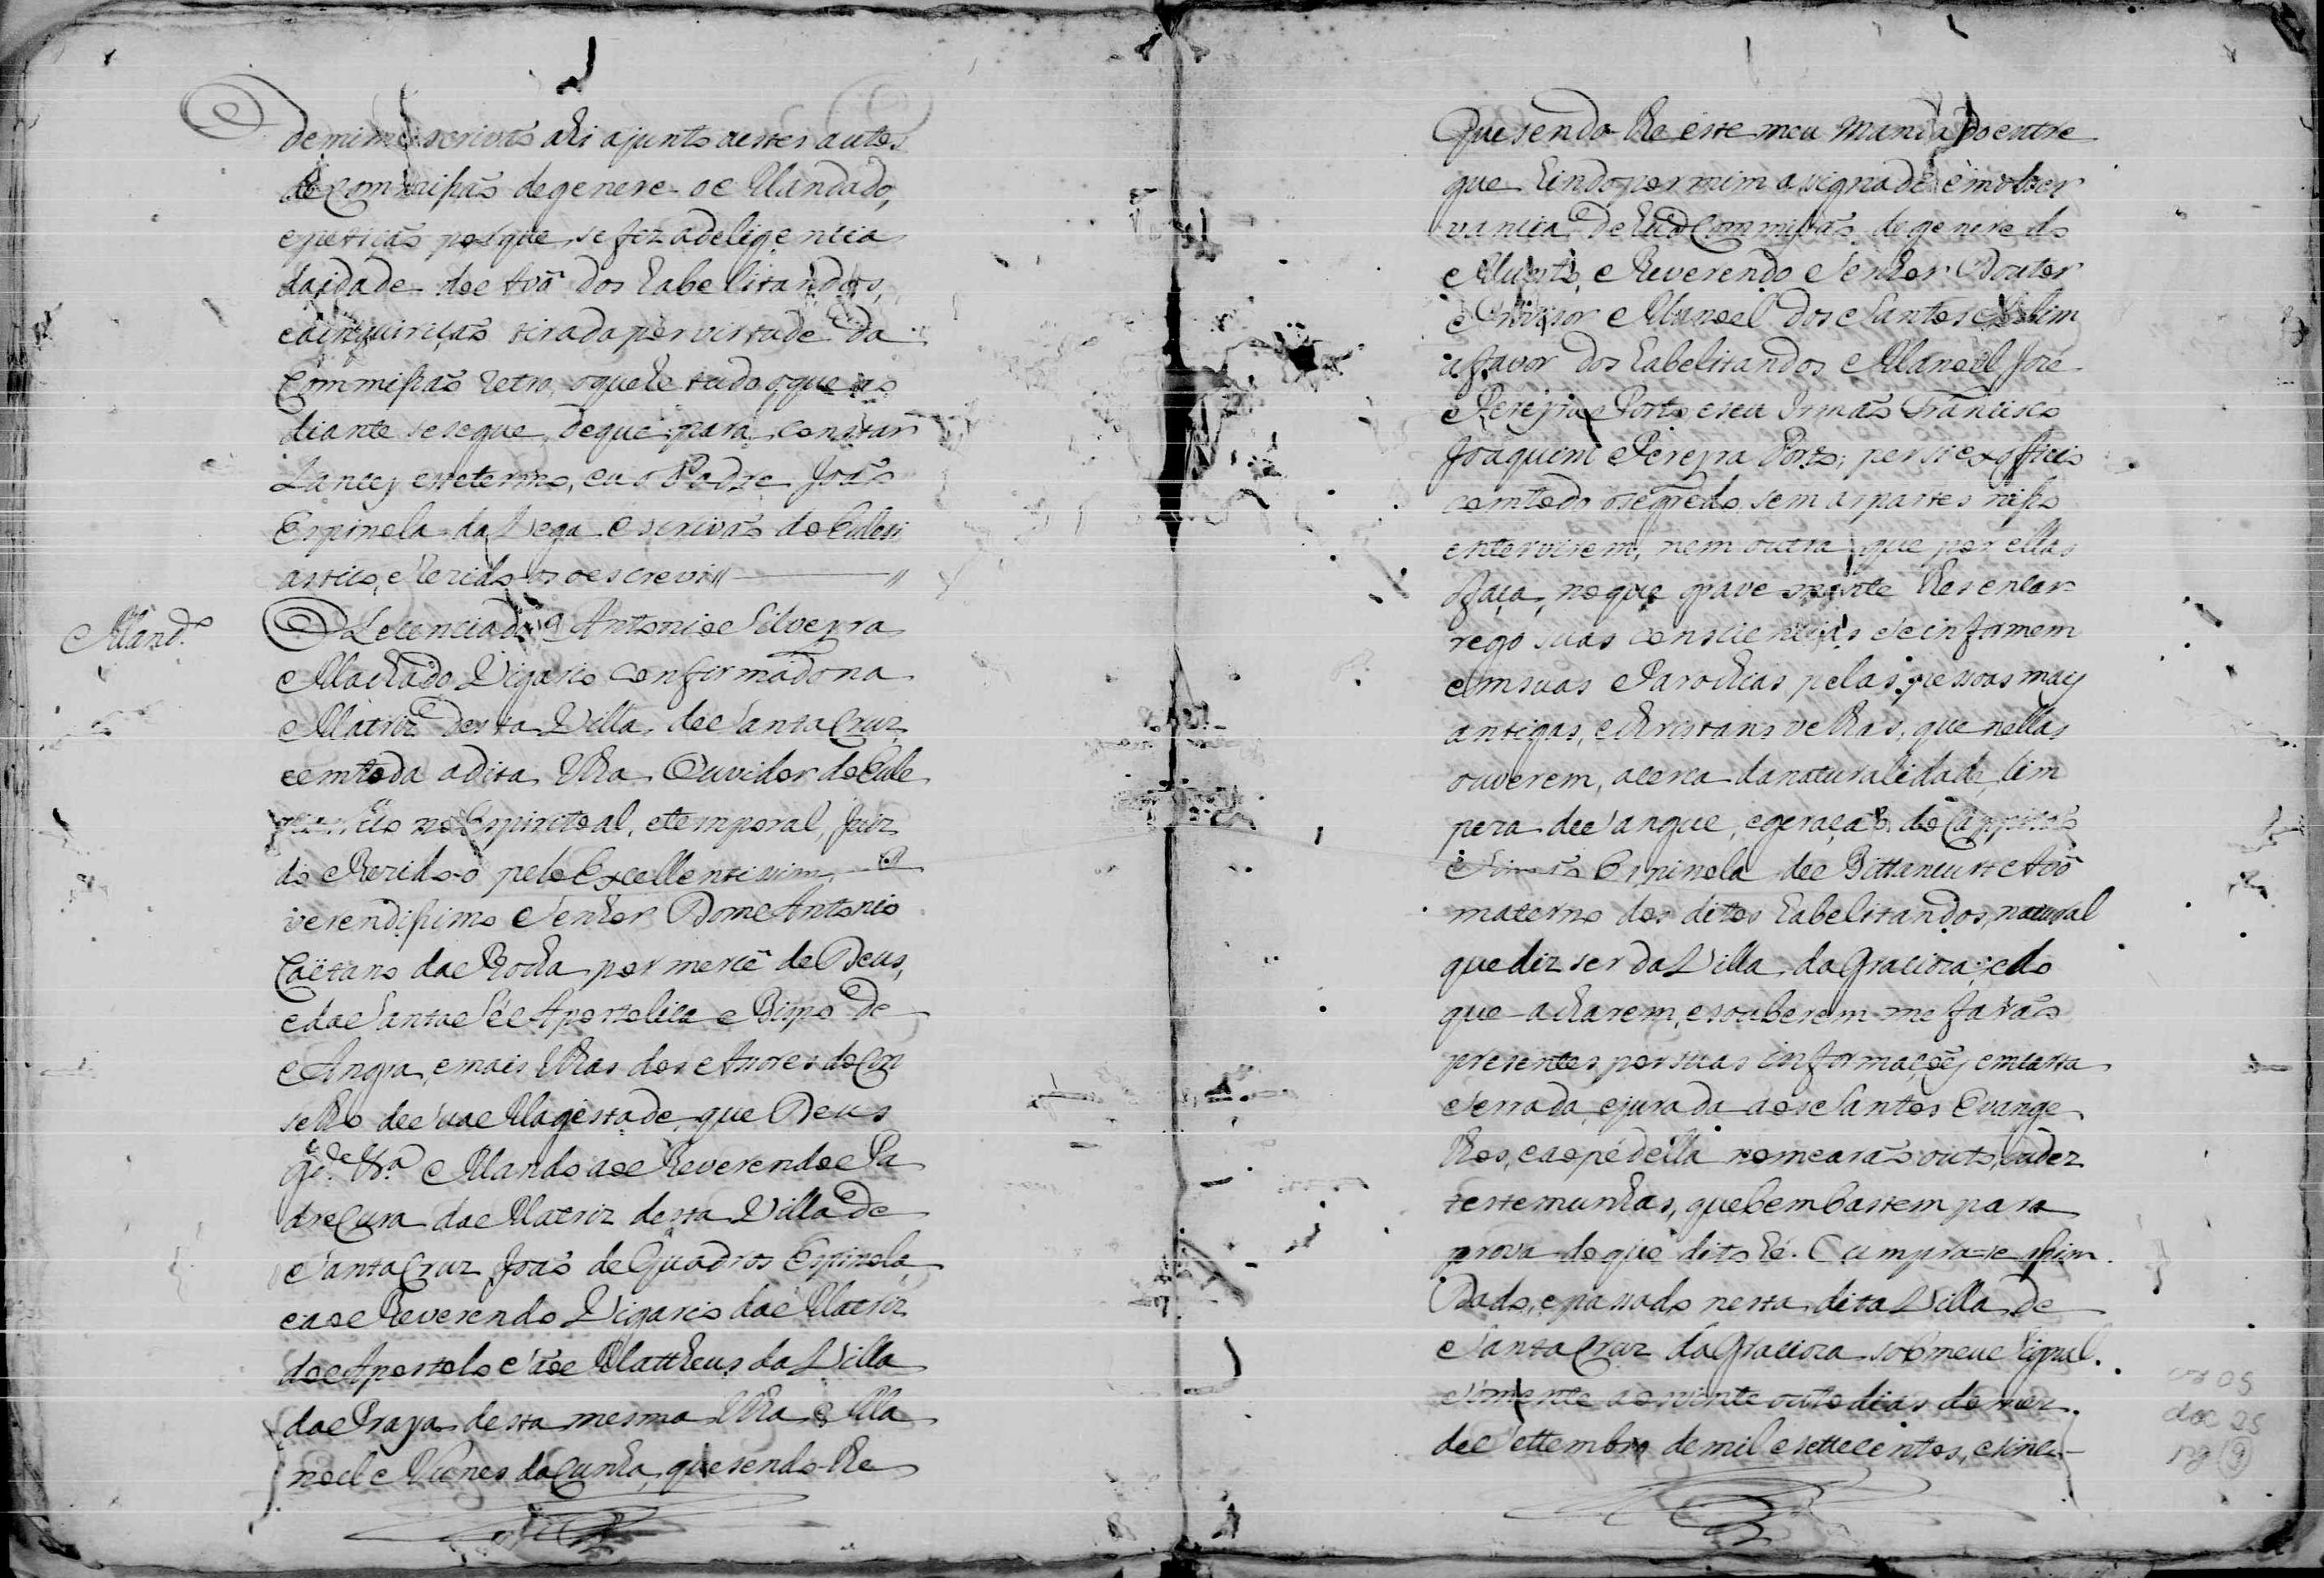 de mim escrivaõ ahi ajunto a estes autos
de Commissaõ de genere o Mandado,
e petiçaõ porque se fez a deligencia
da idade do Avô dos habelitandos,
e a inquiriçaõ tirada por virtude da
Commissaõ retro, o que he tudo o que ao
diante se segue, de que para constar
lancey este termo, eu o Padre Joaõ
Espinola da Veiga escrivaõ do Eclesi
astico, e Rezido-o o escrevi //———//
Mand.º
O Lecenciado Antonio Silveyra
Machado Vigario confirmado na
Matriz desta Villa de Santa Cruz
e em toda a dita Ilha Ouvidor do Ecle
no Espiritoal, e temporal, Juiz
do Rezido-o pelo Excellentissimo Re
verendissimo Senhor Dom Antonio
Caëtano da Rocha por mercê de Deus,
e da Santa Sé Apostolica Bispo de
Angra, e mais Ilhas dos Asores do Con
selho de Sua Magestade, que Deus
g.de &.a Mando ao Reverendo Pa
dre Cura da Matriz desta Villa de
Santa Cruz Joaõ de Quadros Espinola,
e ao Reverendo Vigario da Matriz
do Apostolo Saõ Mattheus da Villa
da Praya desta mesma Ilha Ma
noel Nunes da Cunha, que sendo-lhe
Que sendo-lhe este meu Mandado entre
gue hindo por mim asignado em obser
vancia de huã Commissaõ de genere do
Muito Reverendo Senhor Doutor
Provisor Manoel dos Santos Rolim
a favor dos habelitandos Manoel José
Pereyra Porto, e seu Irmaõ Francisco
Joaquim Pereyra Porto; per si ex officio
com todo o segredo, sem as partes nisso
entervirem, nem outra que por ellas
faça, no que gravemente lhes encar
rego suas consciencias se informem
em suas Parochias, pelas pessoas may
antigas, e christans velhas, que nellas
ouverem, acerca da naturalidade, lim
peza de sangue, e geraçaõ do Cappitaõ
Simaõ Espinola de Bittancurt Avô
materno dos dittos habelitandos, natural
que diz ser da Villa da Gracioza; e do
que acharem, e souberem me faraõ
presentes, por suas informações em carta
serrada, e jurada aos Santos Evange
lhos, e ao pé della nomearaõ outo, ou dez
testemunhas, que bem bastem para
prova do que dito hé. Cumpra-se assim.
Dado, e passado nesta dita Villa de
Santa Cruz da Gracioza sob meu signal.
somente aos vinte outo dias do mez.
de Settembro de mil e settecentos, e sinc-
doc 25
pg 9